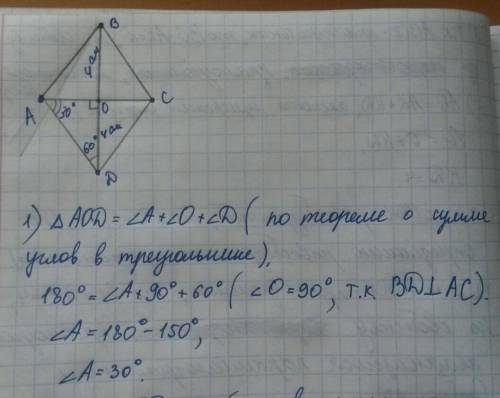 B
4 см
A
30°
O
C
4 см
60°
D
1) △AOD = ∠A+∠O+∠D ( по теореме о сумме
углов в треугольнике),
180° = ∠A+90°+60° ( ∠O=90°, т.к. BD⊥AC).
∠A = 180° - 150°,
∠A = 30°.